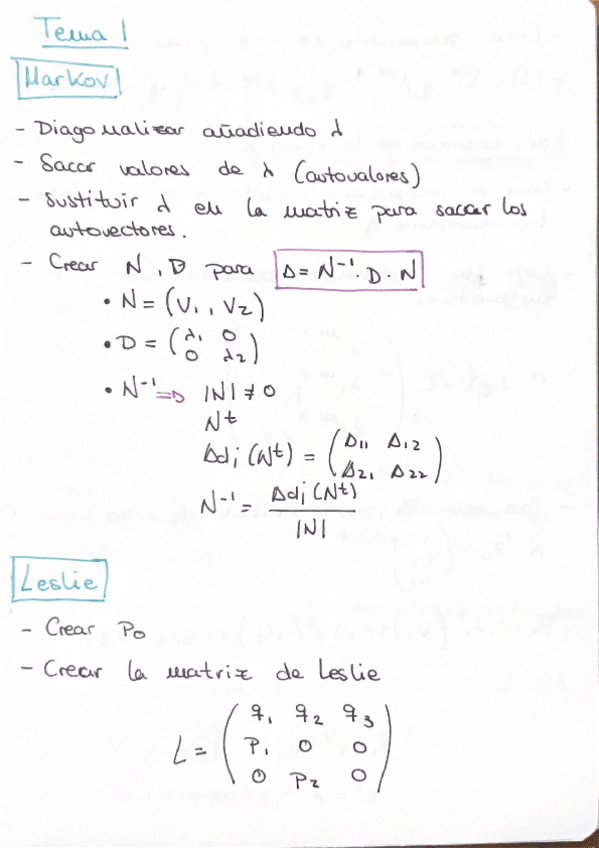 Tema 1
Markov
- Diagonalizar añadiendo λ
- Sacar valores de λ (autovalores)
- Sustituir λ en la matriz para sacar los
autovectores.
- Crear N, D para A = N⁻¹ · D · N
• N = (V₁, V₂)
• D = (λ₁ 0
0 λ₂)
• N⁻¹ ⇒ |N| ≠ 0
Nᵗ
Adj (Nᵗ) = (A₁₁ A₁₂
A₂₁ A₂₂)
N⁻¹ = Adj (Nᵗ)
|N|
Leslie
- Crear P₀
- Crear la matriz de Leslie
L = (q₁ q₂ q₃
P₁ 0 0
0 P₂ 0)